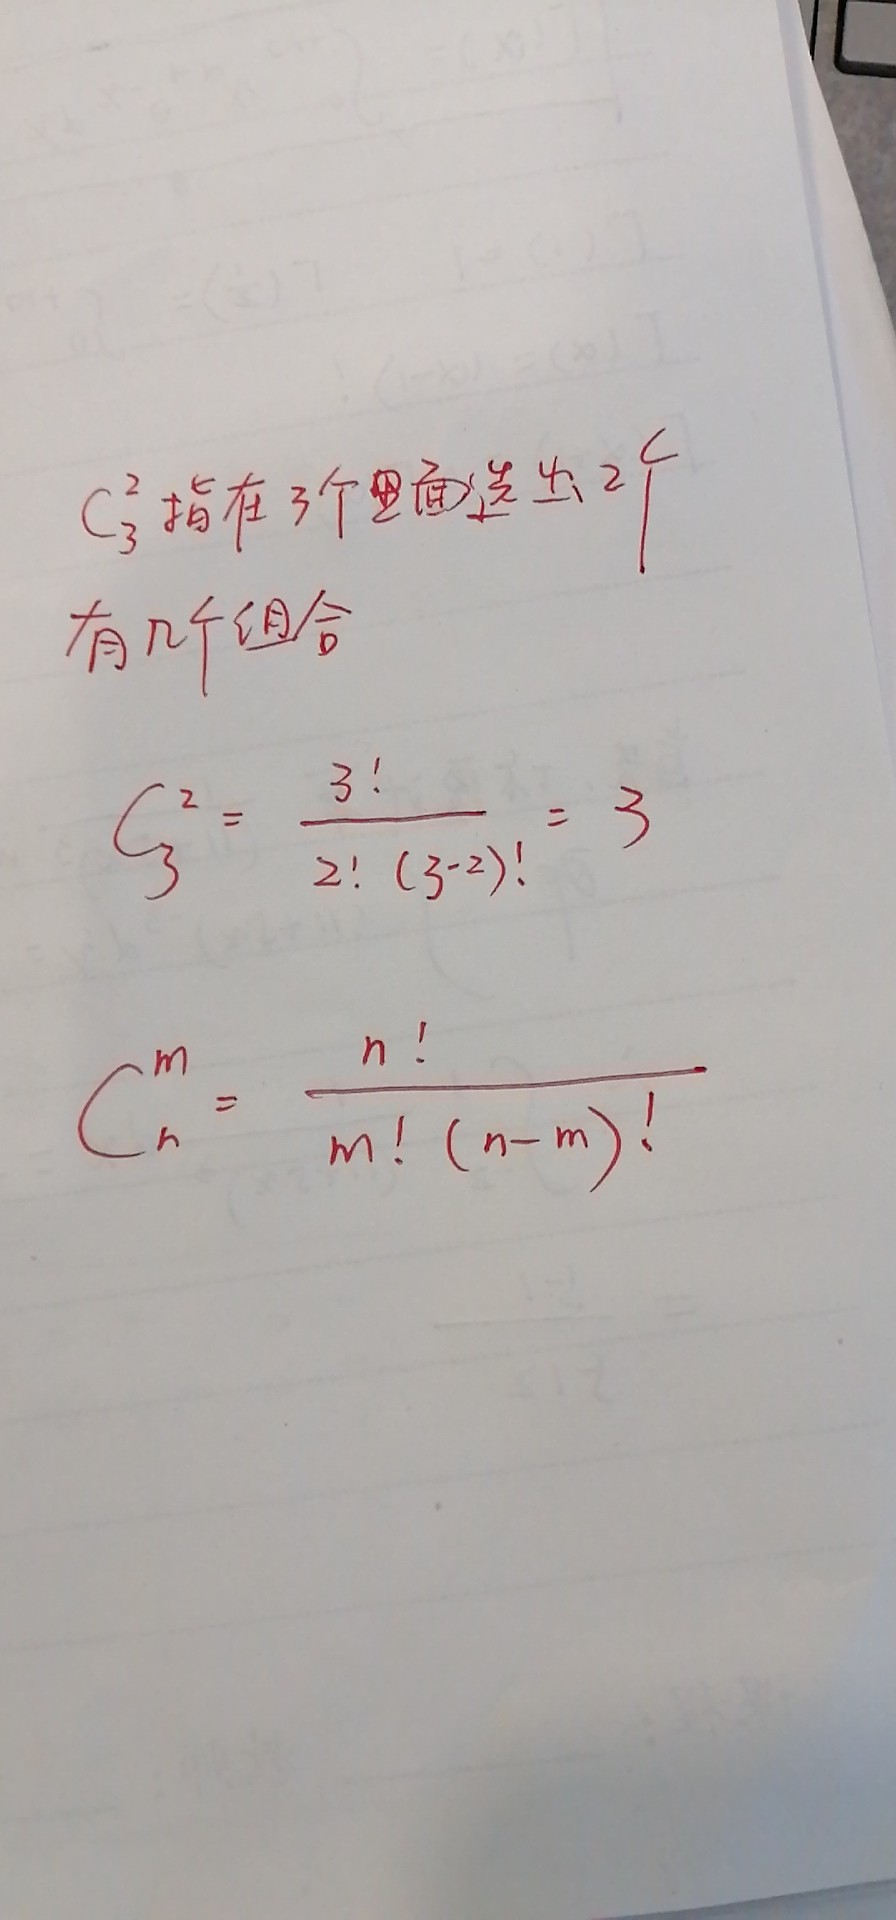 C₃² 指在3个里面选出2个
有几个组合
C₃² = 3! / 2! (3-2)! = 3
Cₙᵐ = n! / m! (n-m)!